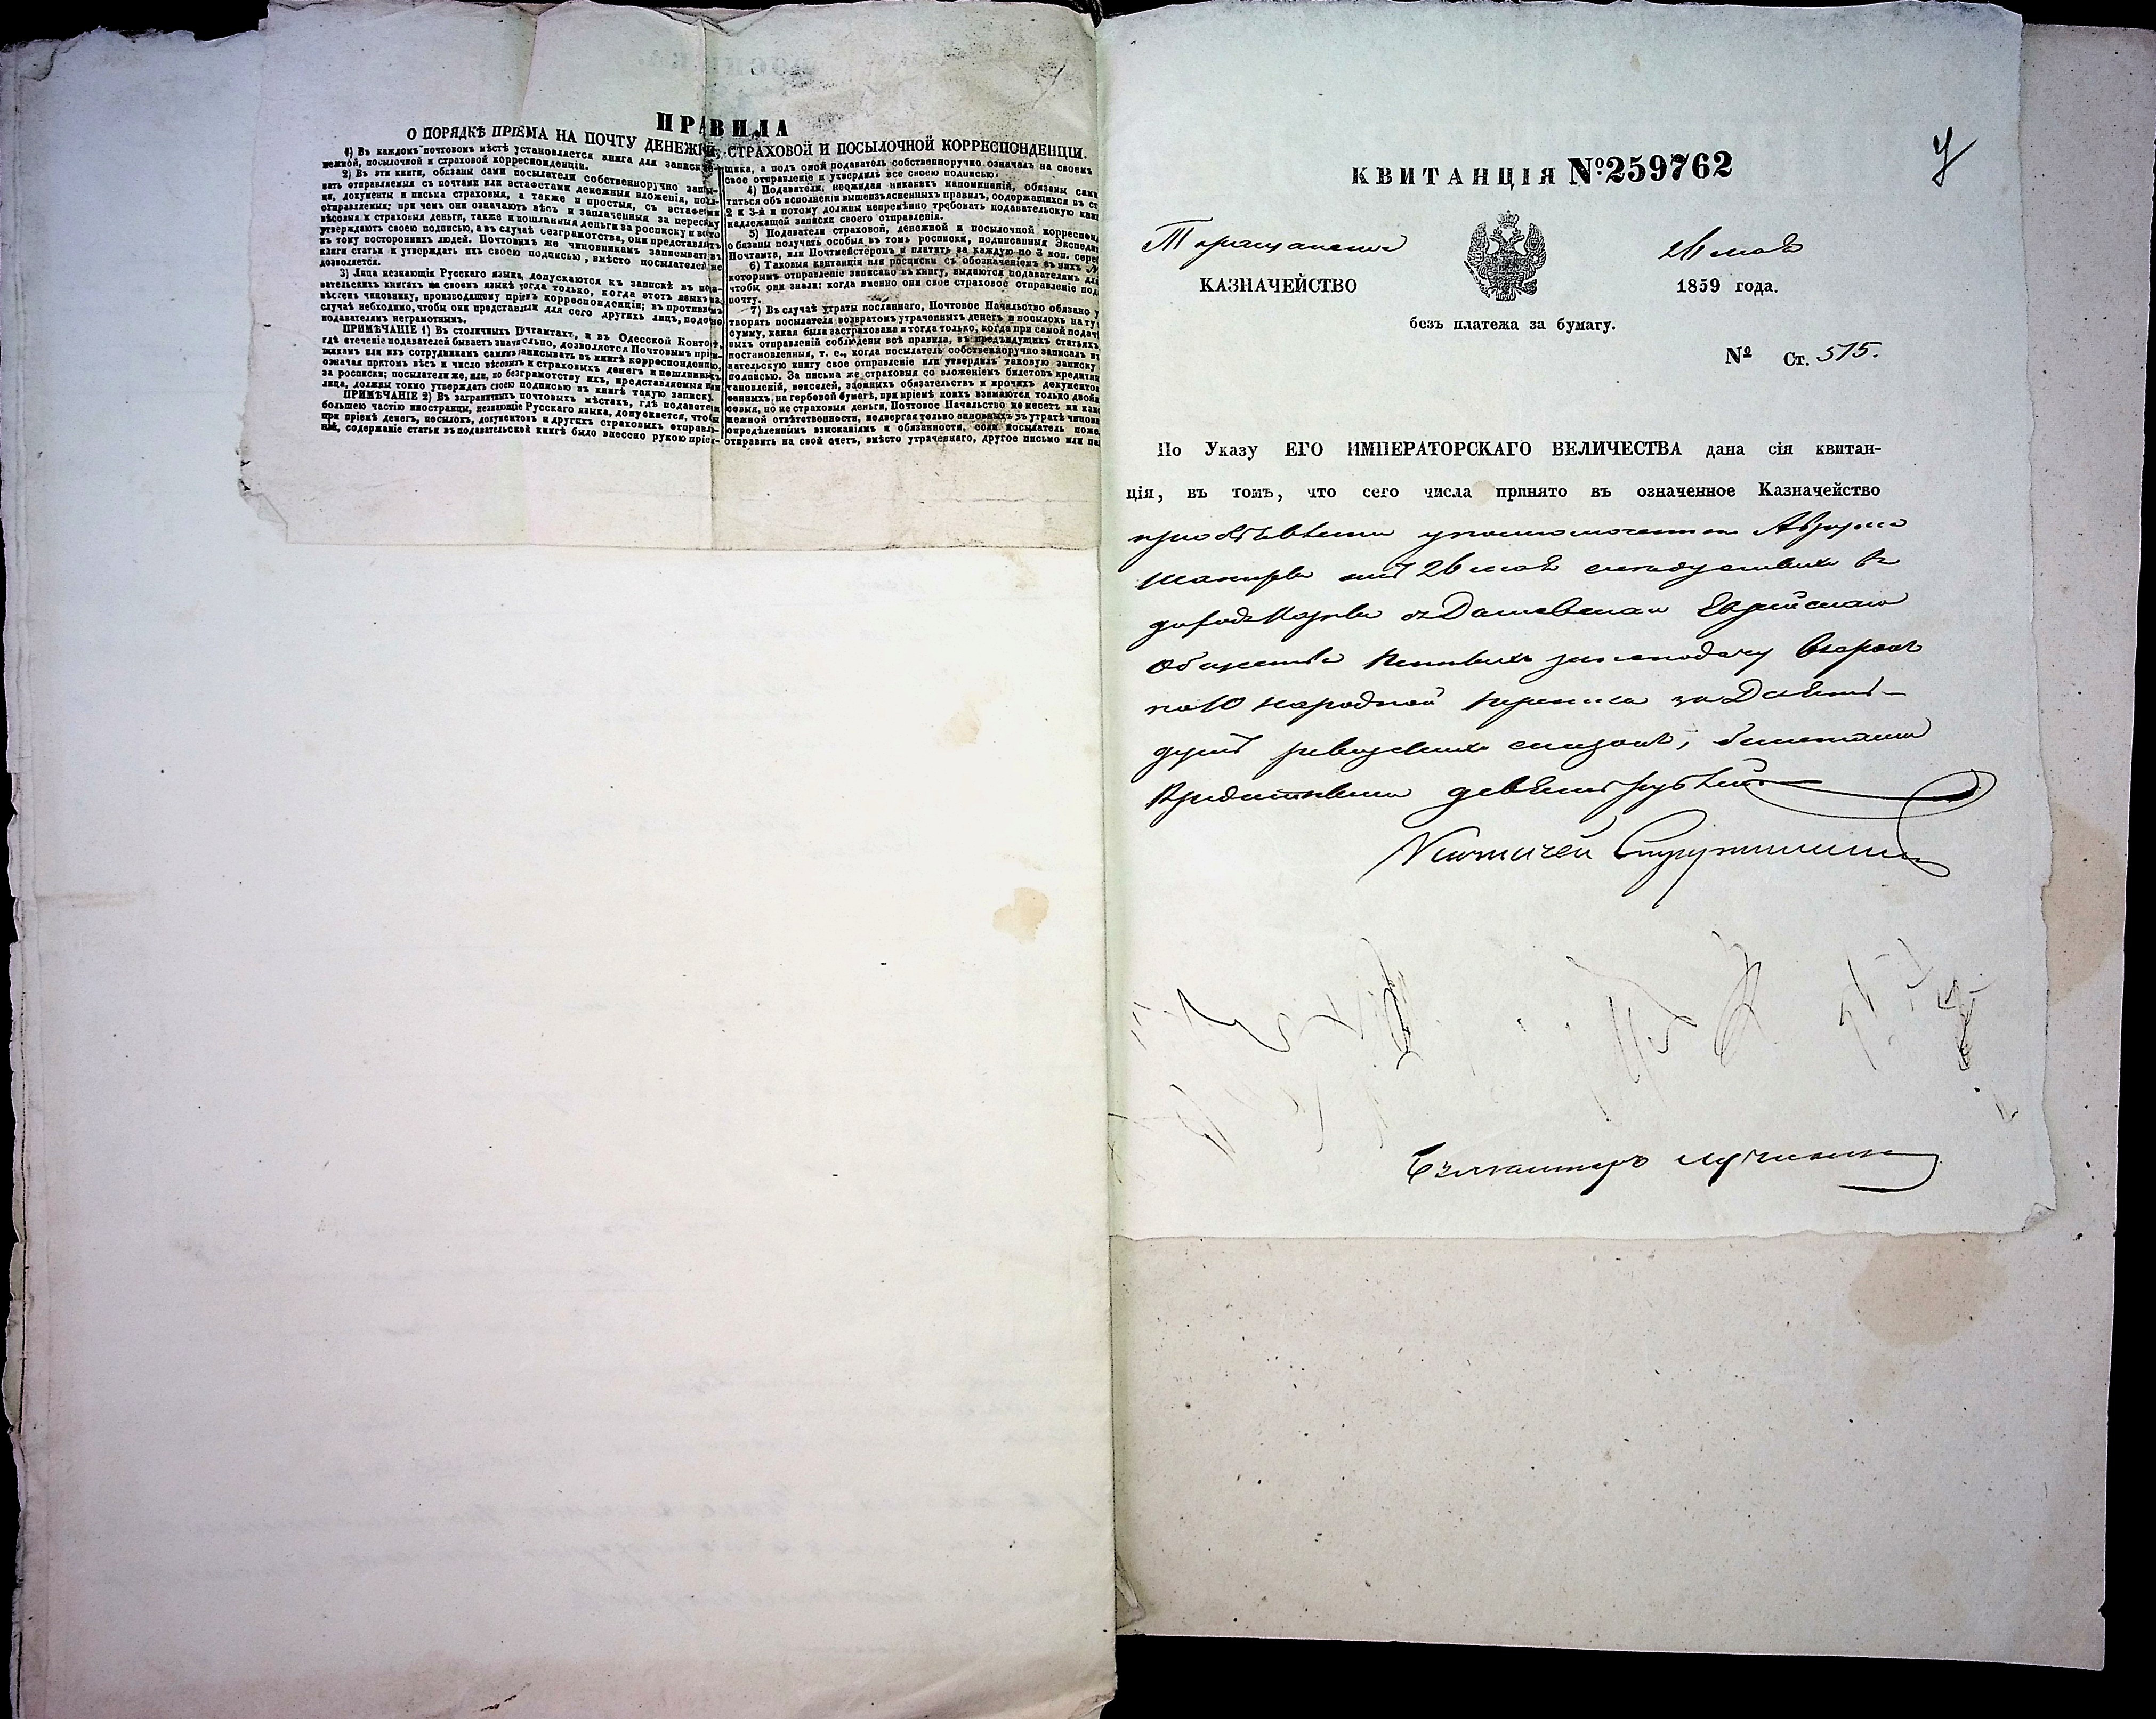 ПРАВИЛА
О ПОРЯДКѢ ПРІЕМА НА ПОЧТУ ДЕНЕЖНОЙ, СТРАХОВОЙ И ПОСЫЛОЧНОЙ КОРРЕСПОНДЕНЦІИ.
1) Въ каждомъ почтовомъ мѣстѣ установляется книга для записки де-
нежной, посылочной и страховой корреспонденціи.
2) Въ эти книги, обязаны сами посылатели собственноручно запи-
вать отправляемыя съ почтами или эстафетами денежныя вложенія, посыл-
ки, документы и письма страховыя, а также и простыя, съ эстафетами
отправляемыя; при чемъ они означаютъ вѣсъ и заплаченныя за пересылку
вѣсовыя и страховыя деньги, также и пошлинныя деньги за росписку и все то
утверждаютъ своею подписью, а въ случаѣ безграмотства, они представляютъ
къ тому постороннихъ людей. Почтовымъ же чиновникамъ записывать въ
книги статьи и утверждать ихъ своею подписью, вмѣсто посылателей не
дозволяется.
3) Лица незнающія Русскаго языка, допускаются къ запискѣ въ пода-
вательскихъ книгахъ на своемъ языкѣ тогда только, когда этотъ языкъ из-
вѣстенъ чиновнику, производящему пріемъ корреспонденціи; въ противномъ
случаѣ небходимо, чтобы они представили для сего другихъ лицъ, подобно
подавателямъ неграмотнымъ.
ПРИМѢЧАНІЕ 1) Въ столичныхъ Почтамтахъ, и въ Одесской Конторѣ,
гдѣ стеченіе подавателей бываетъ значительно, дозволяется Почтовымъ прiем-
щикамъ или ихъ сотрудникамъ самимъ записывать въ книгѣ корреспонденцію,
означая притомъ вѣсъ и число вѣсовыхъ и страховыхъ денегъ и пошлинныхъ
за росписки; посылатели же, или, по безграмотству ихъ, представляемыя ими
лица, должны токмо утверждать своею подписью въ книгѣ такую записку.
ПРИМѢЧАНІЕ 2) Въ заграничныхъ почтовыхъ мѣстахъ, гдѣ подаватели
большею частію иностранцы, незнающіе Русскаго языка, допускается, чтобъ
при пріемѣ денегъ, посылокъ, документовъ и другихъ страховыхъ отправле-
ній, содержаніе статьи въ подавательской книгѣ было внесено рукою пріем-
щика, а подъ оной подаватель собственноручно означалъ на своемъ
свое отправленіе и утвердилъ все своею подписью.
4) Подаватели, неожидая никакихъ напоминаній, обязаны сами
титься объ исполненіи вышеизъясненныхъ правилъ, содержащихся въ ст.
2 и 3-й и потому должны непремѣнно требовать подавательскую книгу
надлежащей записки своего отправленія.
5) Подаватели страховой, денежной и посылочной корреспонд
обязаны получать особыя въ томъ росписки, подписанныя Экспеди
Почтамта, или Почтмейстеромъ и платить за каждую по 3 коп. сереб
6) Таковыя квитанціи или росписки съ обозначеніемъ въ нихъ №
которымъ отправленіе записано въ книгу, выдаются подавателямъ для
чтобы они знали: когда именно они свое страховое отправленіе под
почту.
7) Въ случаѣ утраты посланнаго, Почтовое Начальство обязано у
творять посылателя возвратомъ утраченныхъ денегъ и посылокъ на ту
сумму, какая была застрахована и тогда только, когда при самой подачѣ
выхъ отправленій соблюдены всѣ правила, въ предъидущихъ статьяхъ
постановленныя, т. е., когда посылатель собственноручно записалъ въ
вательскую книгу свое отправленіе или утвердилъ таковую записку
подписью. За письма же страховыя со вложеніемъ билетовъ кредитн
тановленій, векселей, заемныхъ обязательствъ и прочихъ документов
санныхъ на гербовой бумагѣ, при пріемѣ коихъ взимаются только двойн
совыя, но не страховыя деньги, Почтовое Начальство не несетъ ни как
нежной отвѣтственности, подвергая только виновныхъ въ утратѣ чинов
опредѣленнымъ взысканіямъ и обязанности, если посылатель поже
отправить на свой счетъ, вмѣсто утраченнаго, другое письмо или па
7
КВИТАНЦІЯ №259762
Таращанское 26 мая
КАЗНАЧЕЙСТВО 1859 года.
безъ платежа за бумагу.
№ Ст. 575.
По Указу ЕГО ИМПЕРАТОРСКАГО ВЕЛИЧЕСТВА дана сія квитан-
ція, въ томъ, что сего числа принято въ означенное Казначейство
при объявленіи
26 мая
Дашевскаго Еврейскаго
Общества
по 10 народной переписи за Девять
душъ ревизскихъ билетами
Кредитными девять рублей
Казначей
Бухгалтеръ